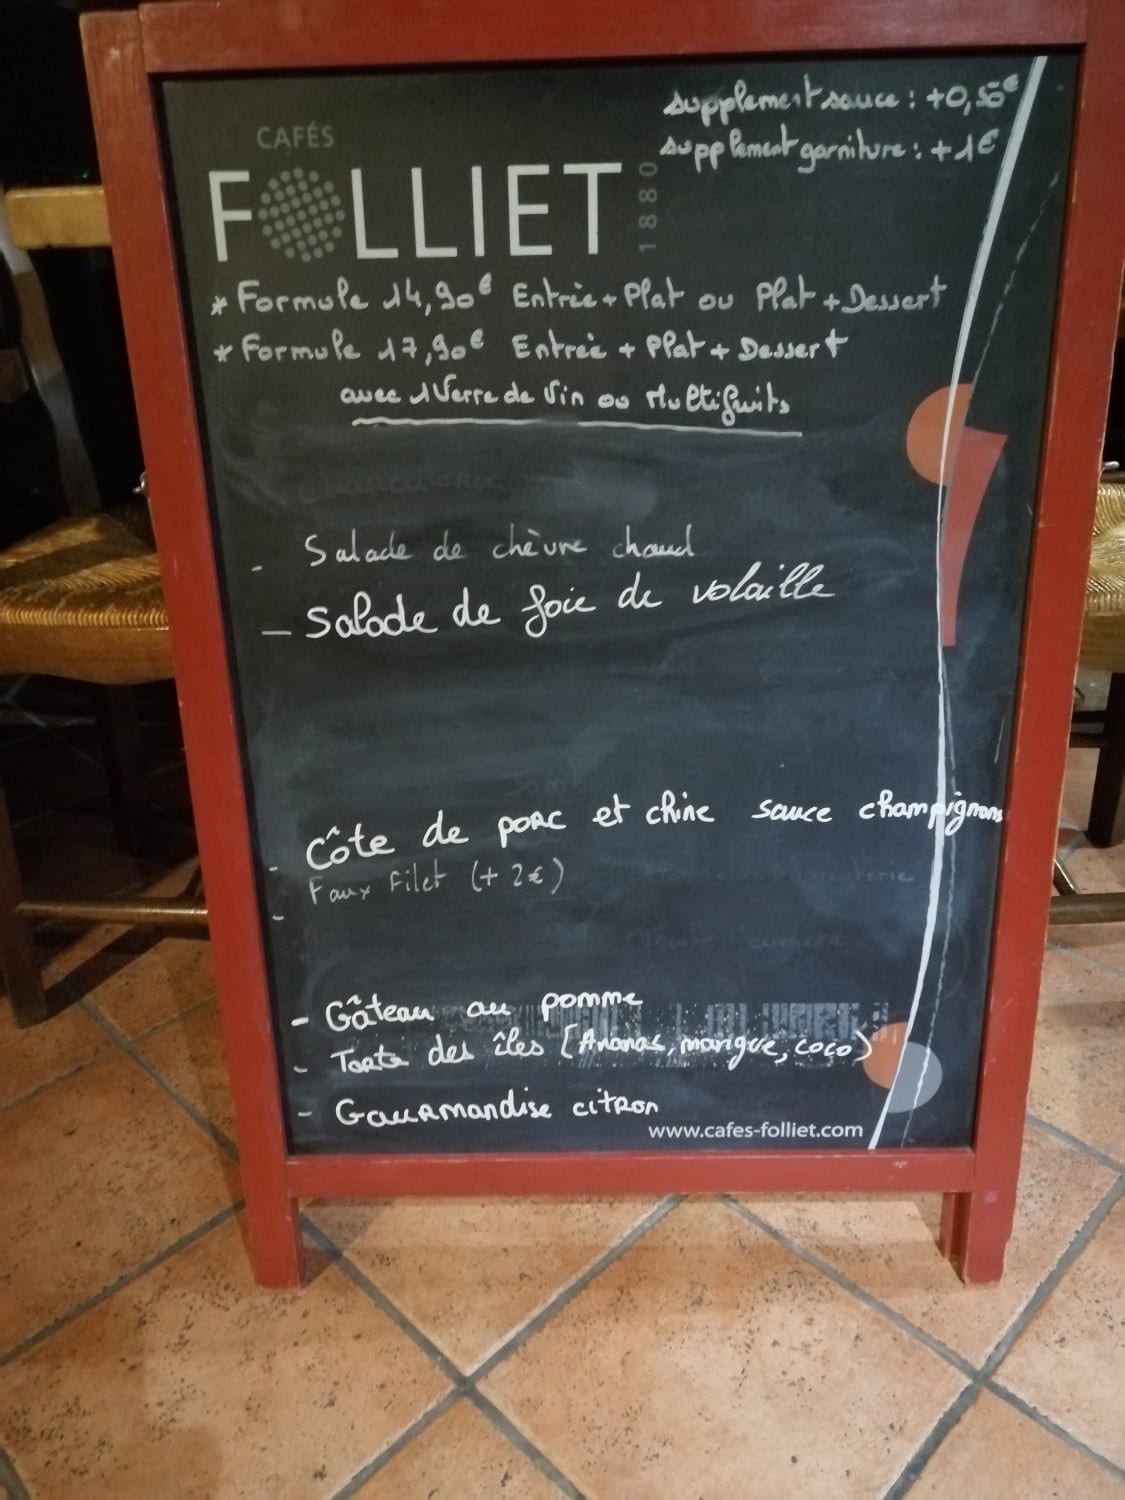 supplement sauce : +0,50€
supplement garniture : +1€
CAFÉS
FOLLIET
1880
* Formule 14,90€ Entrée + Plat ou Plat + Dessert
* Formule 17,90€ Entrée + Plat + Dessert
avec 1 Verre de Vin ou Multifruits
charcuterie
- Salade de chèvre chaud
- Salade de foie de volaille
- Côte de porc et chine sauce champignons
- Faux Filet (+ 2€)
- Gâteau au pomme
- Tarte des îles (Ananas, mangue, coco)
- Gourmandise citron
www.cafes-folliet.com